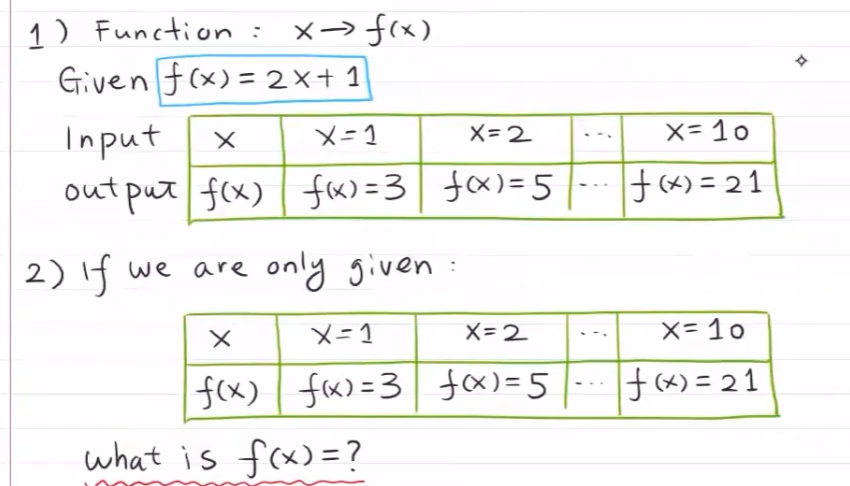 1) Function : x → f(x)
Given f(x) = 2x + 1
Input x x=1 x=2 ... x=10
output f(x) f(x)=3 f(x)=5 ... f(x)=21
2) If we are only given :
x x=1 x=2 ... x=10
f(x) f(x)=3 f(x)=5 ... f(x)=21
what is f(x)=?